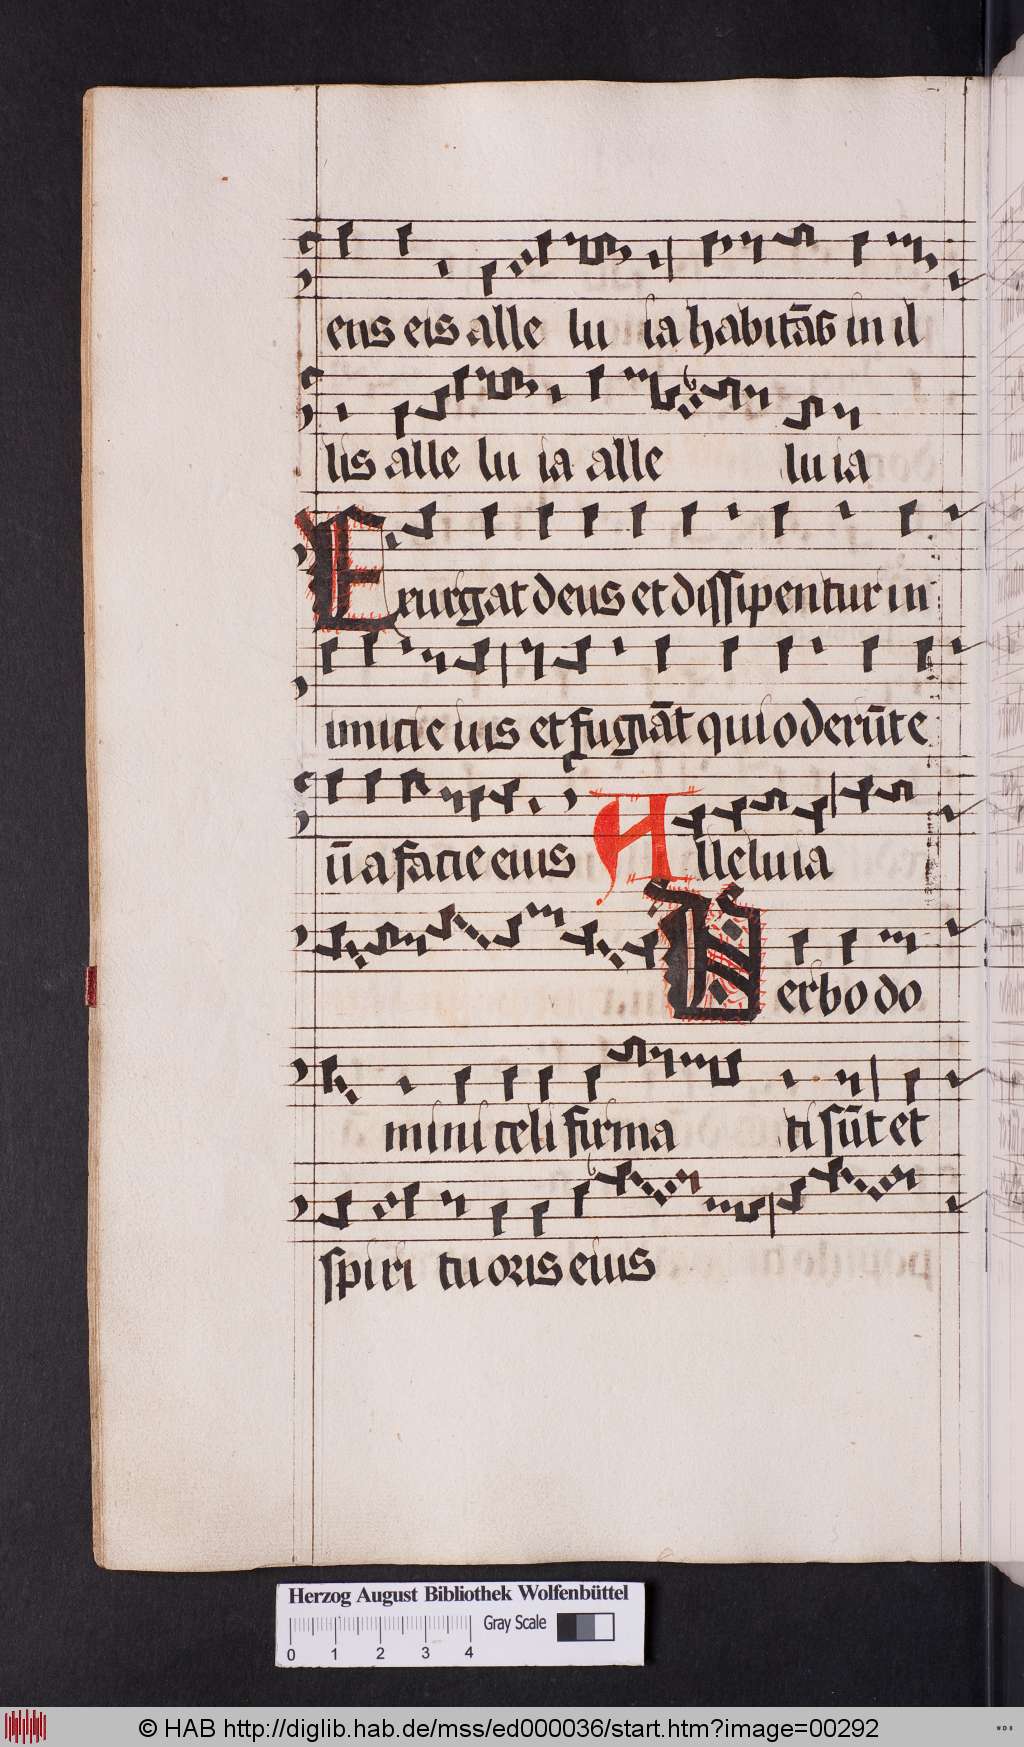 ens eis alle lu ia habitās in il
lis alle lu ia alle lu ia
Exurgat deus et dissipentur in
imici e ius et fugiāt qui oderūt e
ū a facie eius Alleluia
Verbo do
mini celi firma ti sūt et
spiri tu oris eius
Herzog August Bibliothek Wolfenbüttel
Gray Scale
0 1 2 3 4
© HAB http://diglib.hab.de/mss/ed000036/start.htm?image=00292